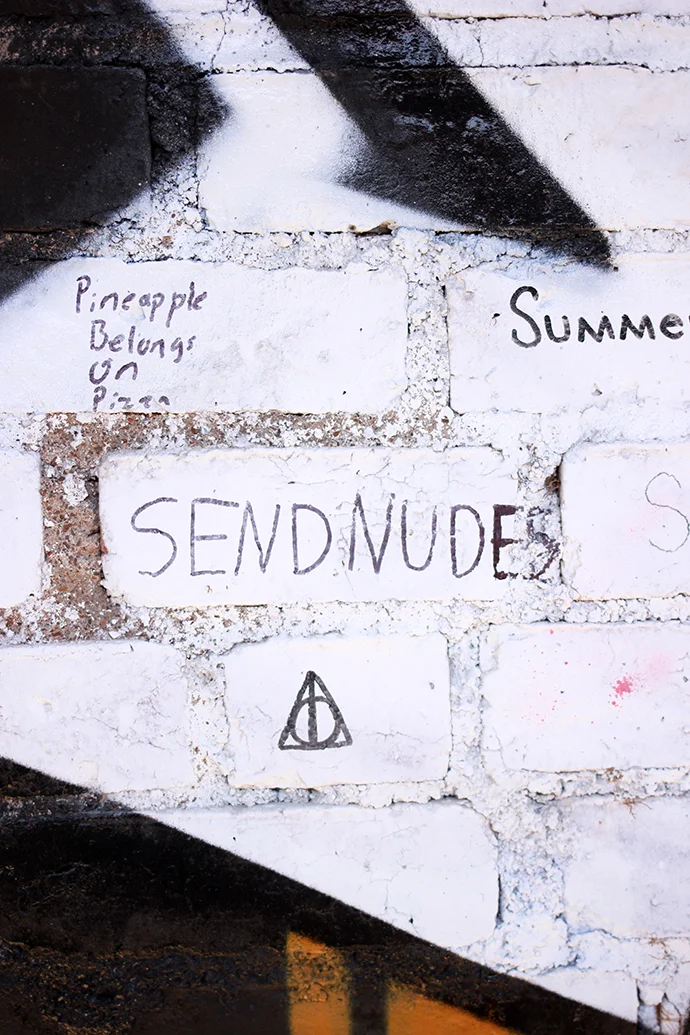 Pineapple
Belongs
on
Pizza
Summe
SEND NUDES
S